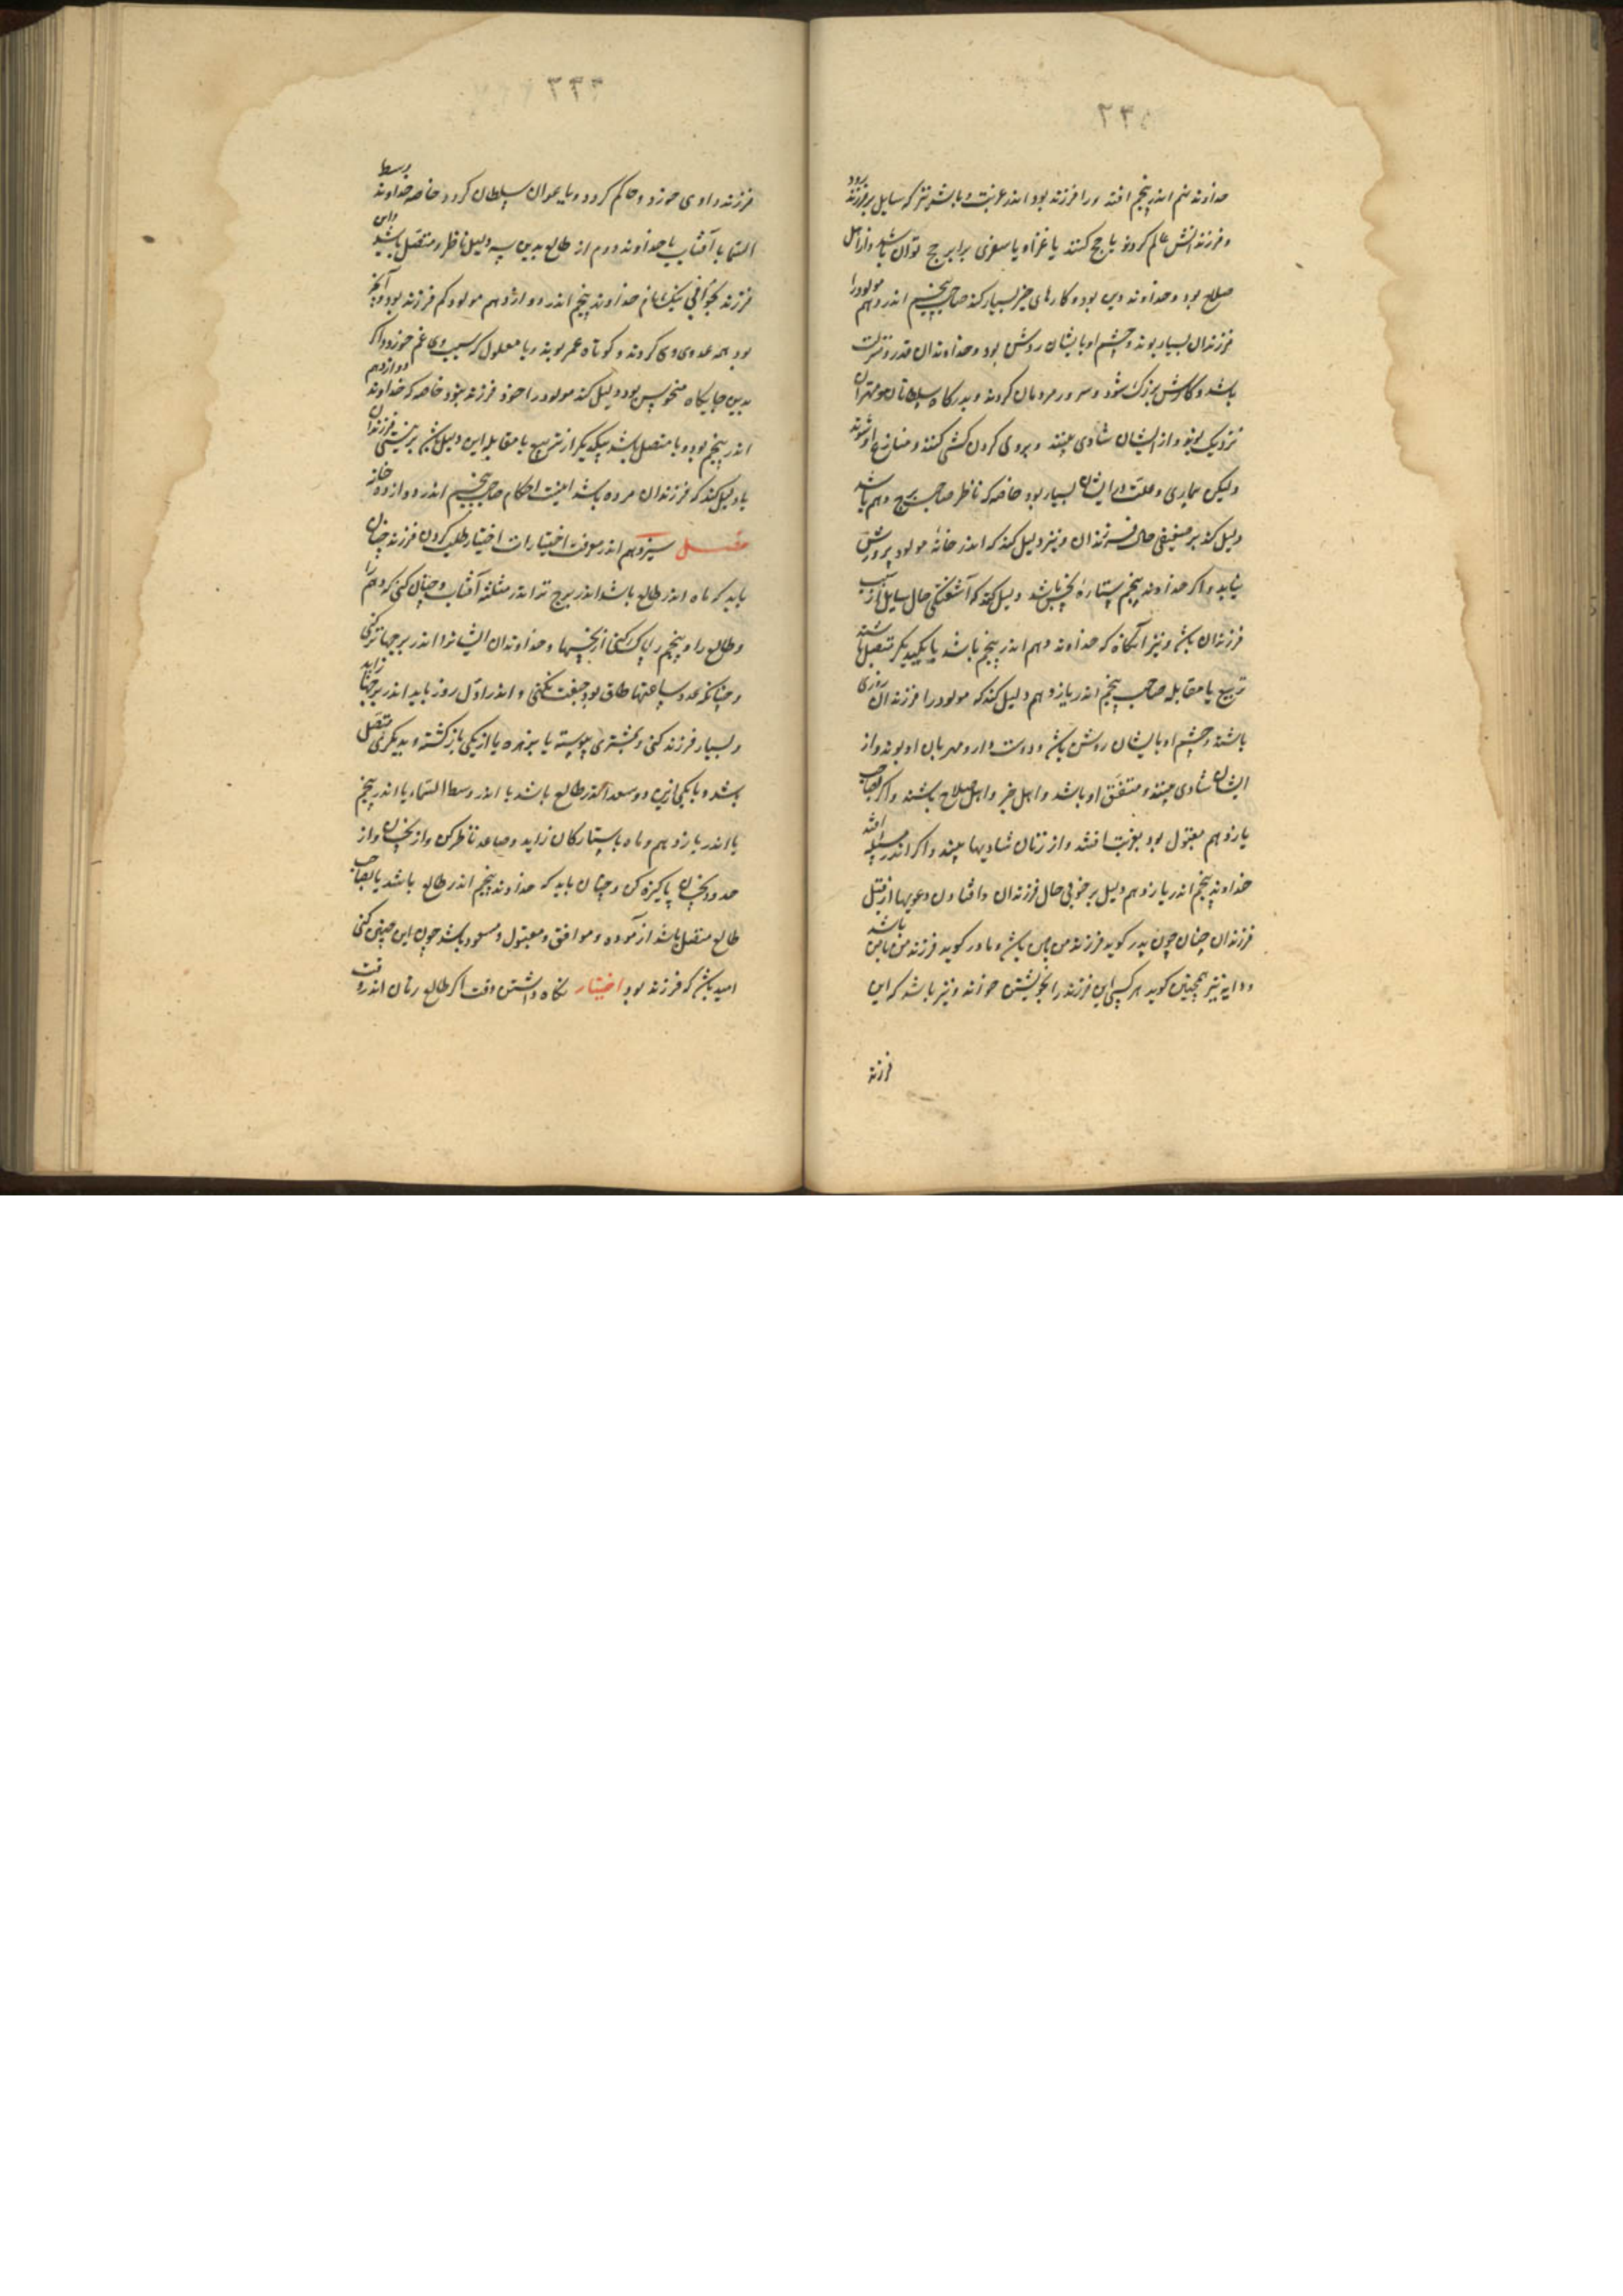 ۲۳۵
خداوند نهم اندر پنجم افتد ورا فرزند بود اندر غربت و باشد نیز که سایل بر فرزند رود
و فرزندانش عالم کردند یا حج کنند یا غزاه یا سفری برابر حج توان باشد و از اهل
صلاح بود و خداوند دین بود و کارهای خیر بسیار کند صاحب پنجم اندر دهم مولود را
فرزندان بسیار بوند و چشم او بایشان روشن بود و خداوندان قدر و منزلت
باشد و کارش بزرک شود و سرور مردمان کردند و بدرکاه سلطانان و مهتران
نزدیک بوند و از ایشان شادی بیند و بر وی کردن کشی کنند و منازع او شوند
ولیکن بیماری و علت ایشان بسیار بود خاصه که ناظر صاحب برج دهم باشد
دلیل کند بر ضعیفی حال فرزندان و نیز دلیل کند که اندر خانه مولود پرورش
نیابد و اکر خداوند پنجم ستاره نحس باشد دلیل کند که آشفتکی حال سایل از سبب
فرزندان باشد و نیز آنکاه که خداوند دهم اندر پنجم باشد یا بیکدیکر متصل باشند
تربیع یا مقابله صاحب پنجم اندر یازدهم دلیل کند که مولود را فرزندان روزی
باشند و چشم او بایشان روشن باشد و دوست دار و مهربان او بوند و از
ایشان شادی بیند و متفق او باشد و اهل خیر و اهل صلاح باشند و اکر صاحب
یازدهم مقبول بود بغربت افتد و از زنان شادیها بیند و اکر اندر مسیله افتد
خداوند پنجم اندر یازدهم دلیل بر خوبی حال فرزندان و افتادن دعویها از قبل
فرزندان چنان چون پدر کوید فرزند من باشد و مادر کوید فرزند من باشد
و دایه نیز همچنین کوید هر کسی این فرزند را بخویشتن خواند و نیز باشد که این
فرزند
۲۳۴
فرزند داوی خورد و حاکم کردد و یا بیران سلطان کردد خاصه خداوند وسط
السما با آفتاب یا خداوند دوم از طالع بدین سه دلیل ناظر و متصل باشد و این
فرزند بجوانی خداوند پنجم اندر دوازدهم مولود کم فرزند بود و آنچه
بود همه عدوی وی کردند و کوتاه عمر بوند یا معلول که بسبب وی غم خورد و اکر
بدین جایکاه منحوس بود دلیل کند مولود را خود فرزند نبود خاصه که خداوند دوازدهم
اندر پنجم بود و یا متصل باشد بیکدیکر از تربیع یا مقابله این دلیل باشد بر نیستی فرزندان
یا دلیل کند که فرزندان مرده باشد اینست احکام صاحب پنجم اندر دوازده خانه
فصل سیزدهم اندر معرفت اختیارات اختیار طلب کردن فرزند چنان
باید که ماه اندر طالع باشد اندر برج نر اندر مثلثه آفتاب و چنان کنی که دهم را
و طالع را و پنجم را پاک کنی از نحسها و خداوندان ایشانرا اندر برجها نر کنی
و چنانکه عدد ساعتها طاق بود جفت نکنی و اندر اول روز باید اندر برجها زاید
و بسیار فرزند کنی و بمشتری پیوسته یا بزهره یا از یکی بازکشته و بدیکری متصل
باشد و یا یکی ازین دو سعد اندر طالع باشد یا اندر وسط السماء یا اندر پنجم
یا اندر یازدهم و ماه با ستارکان زاید و صاعد ناظر کن و از نحسان و از
حدود نحسان پاکیزه کن و چنان باید که خداوند پنجم اندر طالع باشد یا بصاحب
طالع متصل باشد از آموده و موافق و مقبول و مسعود باشد چون این چنین کنی
امید باشد که فرزند بود اختیار نکاه داشتن وقت اکر طالع زنان اندر وقت